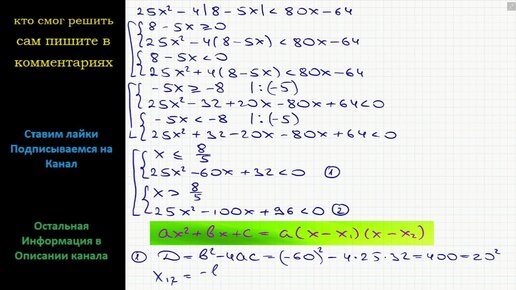 кто смог решить
сам пишите в
комментариях
Ставим лайки
Подписываемся на
Канал
Остальная
Информация в
Описании канала
25x² − 4|8 − 5x| < 80x − 64
8 − 5x ≥ 0
25x² − 4(8 − 5x) < 80x − 64
8 − 5x < 0
25x² + 4(8 − 5x) < 80x − 64
−5x ≥ −8 |:(−5)
25x² − 32 + 20x − 80x + 64 < 0
−5x < −8 |:(−5)
25x² + 32 − 20x − 80x + 64 < 0
x ≤ 8/5
25x² − 60x + 32 < 0 ①
x > 8/5
25x² − 100x + 96 < 0 ②
ax² + bx + c = a(x − x₁)(x − x₂)
① D = b² − 4ac = (−60)² − 4·25·32 = 400 = 20²
x₁,₂ = −b